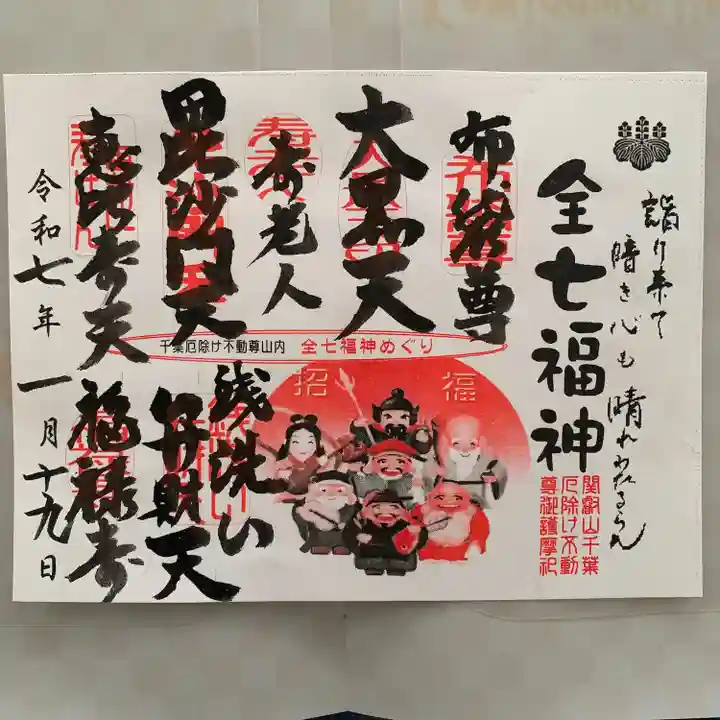 詣り来て
暗き心も
晴れわたるらん
全七福神
関叡山千葉
厄除け不動
尊御護摩祀
布袋尊
大黒天
寿老人
毘沙門天
恵比寿天
千葉厄除け不動尊山内 全七福神めぐり
招福
銭洗い
弁財天
福禄寿
令和七年一月十九日